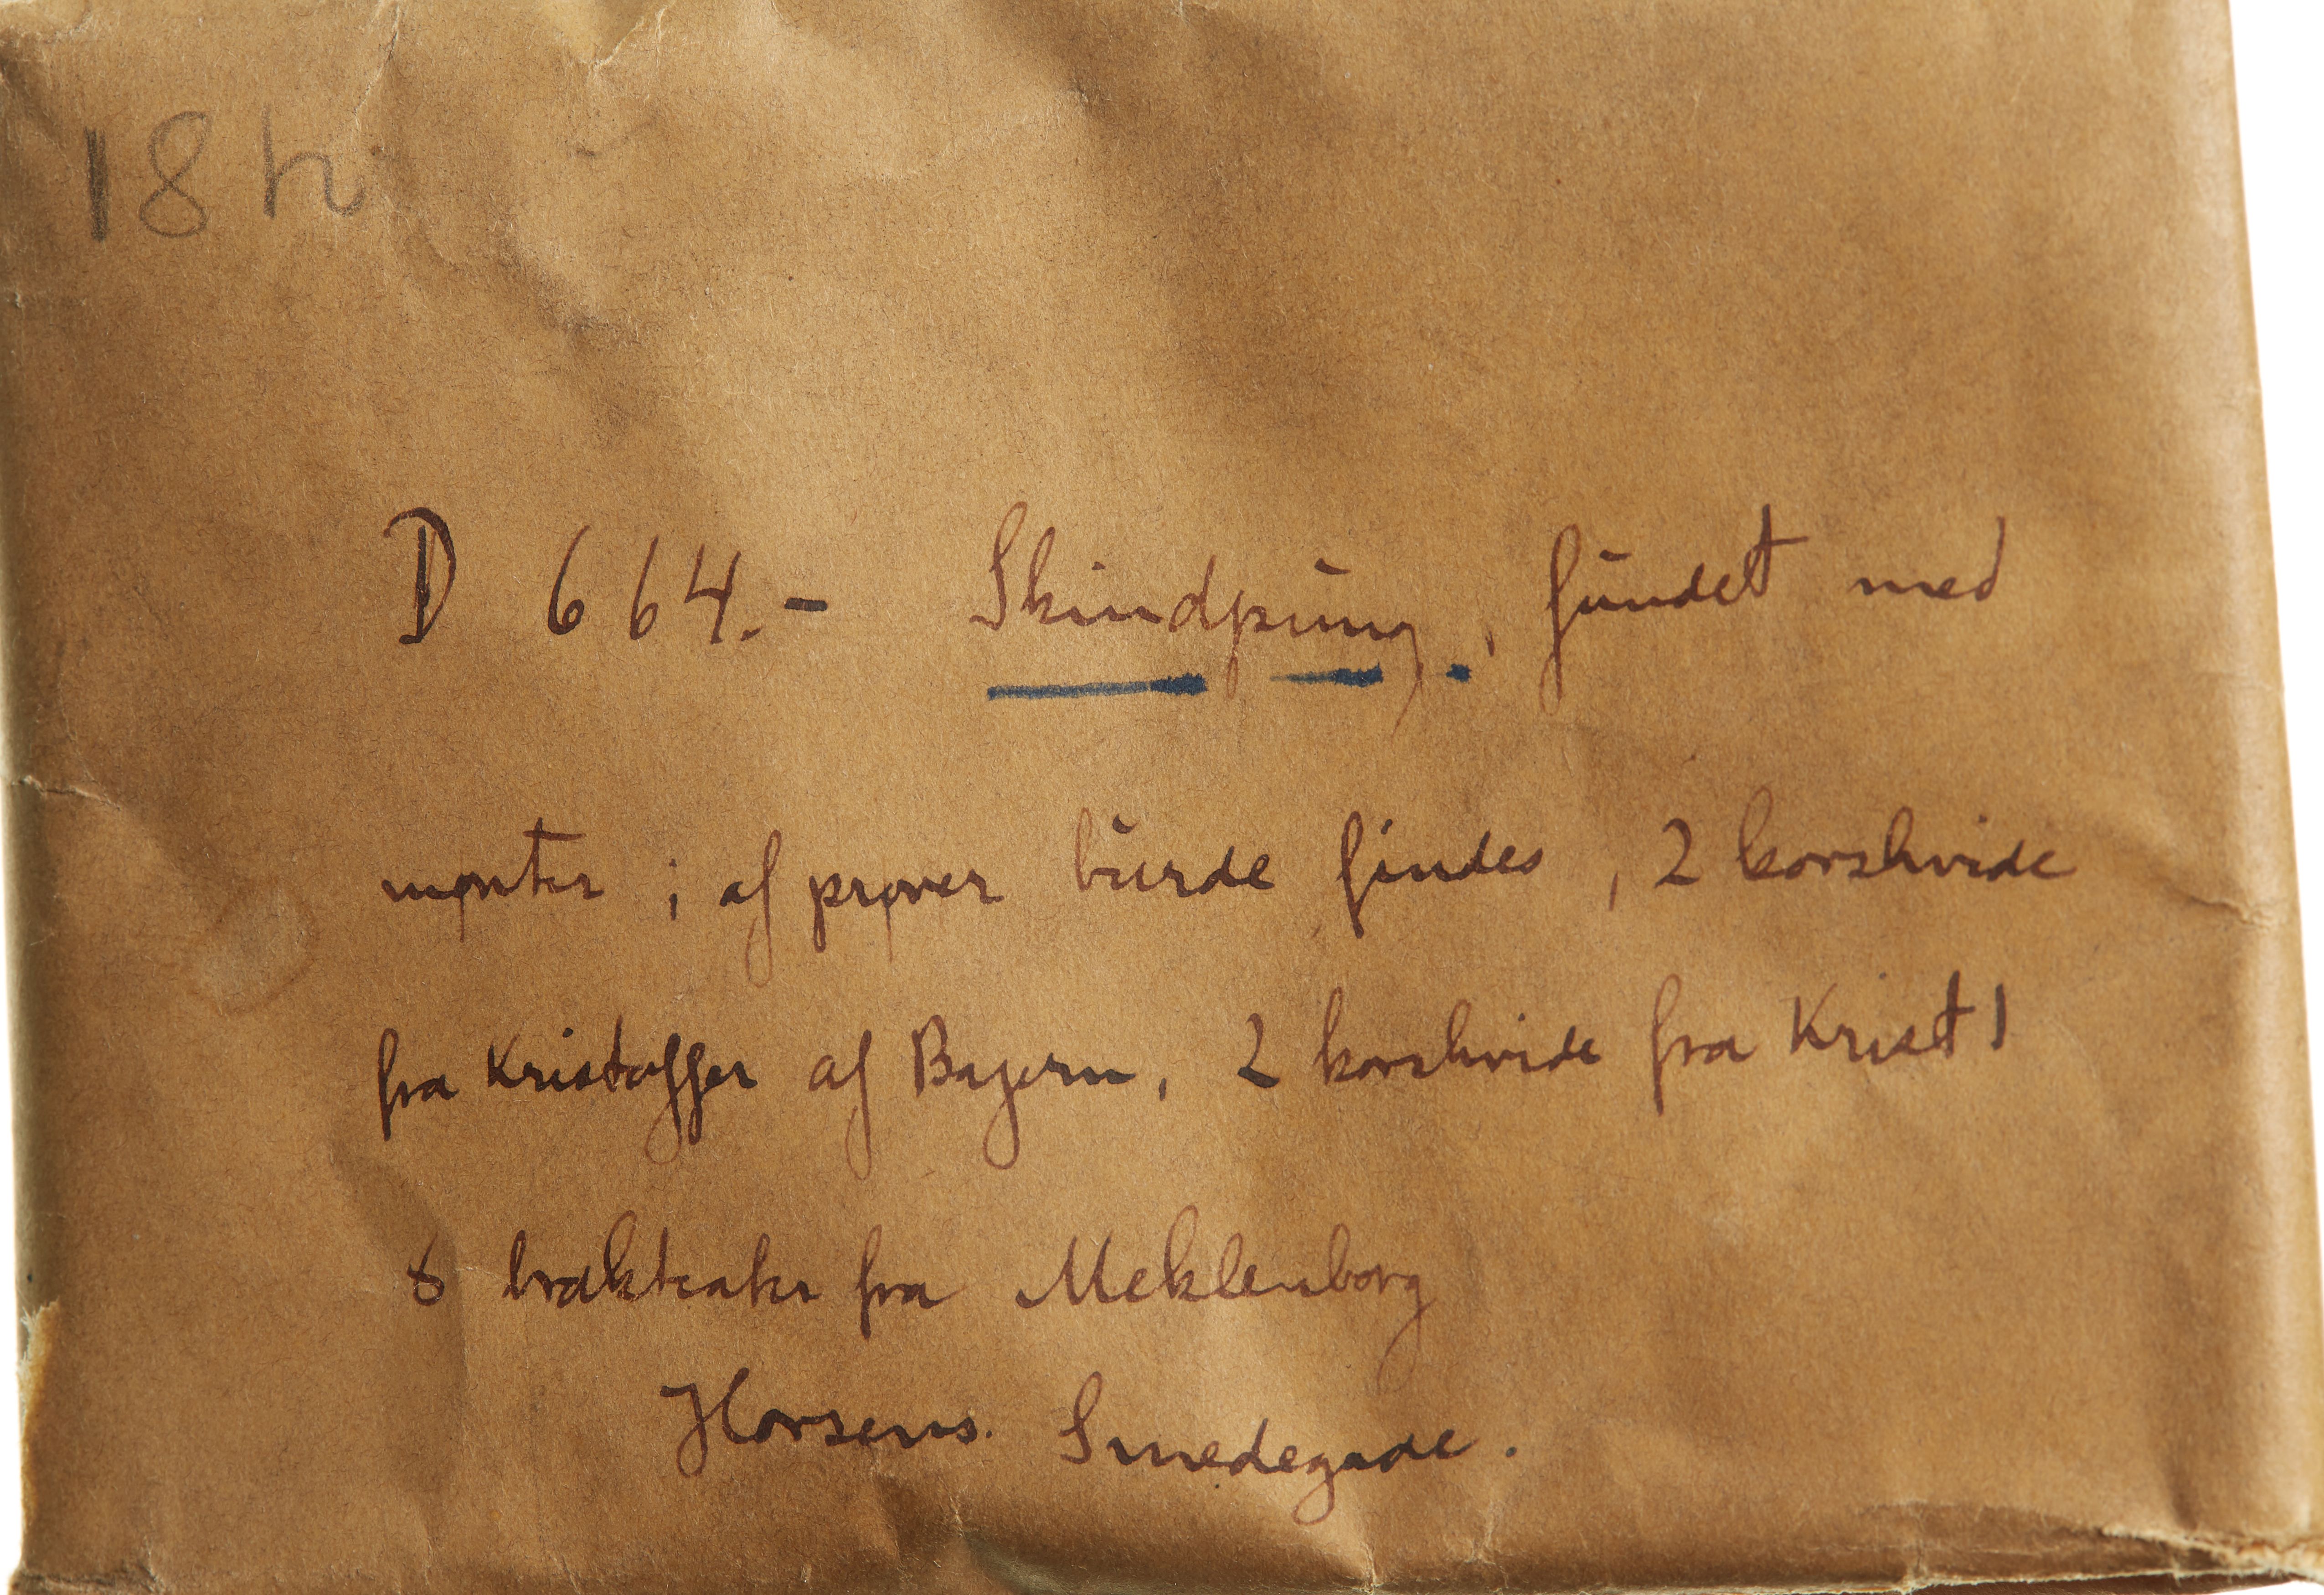 18 h
D 664.- Skindpung, fundet med
mønter ; af prøver burde findes, 2 korshvide
fra Kristoffer af Bayern, 2 korshvide fra Krist I
8 brakteater fra Meklenborg
Horsens. Smedegade.